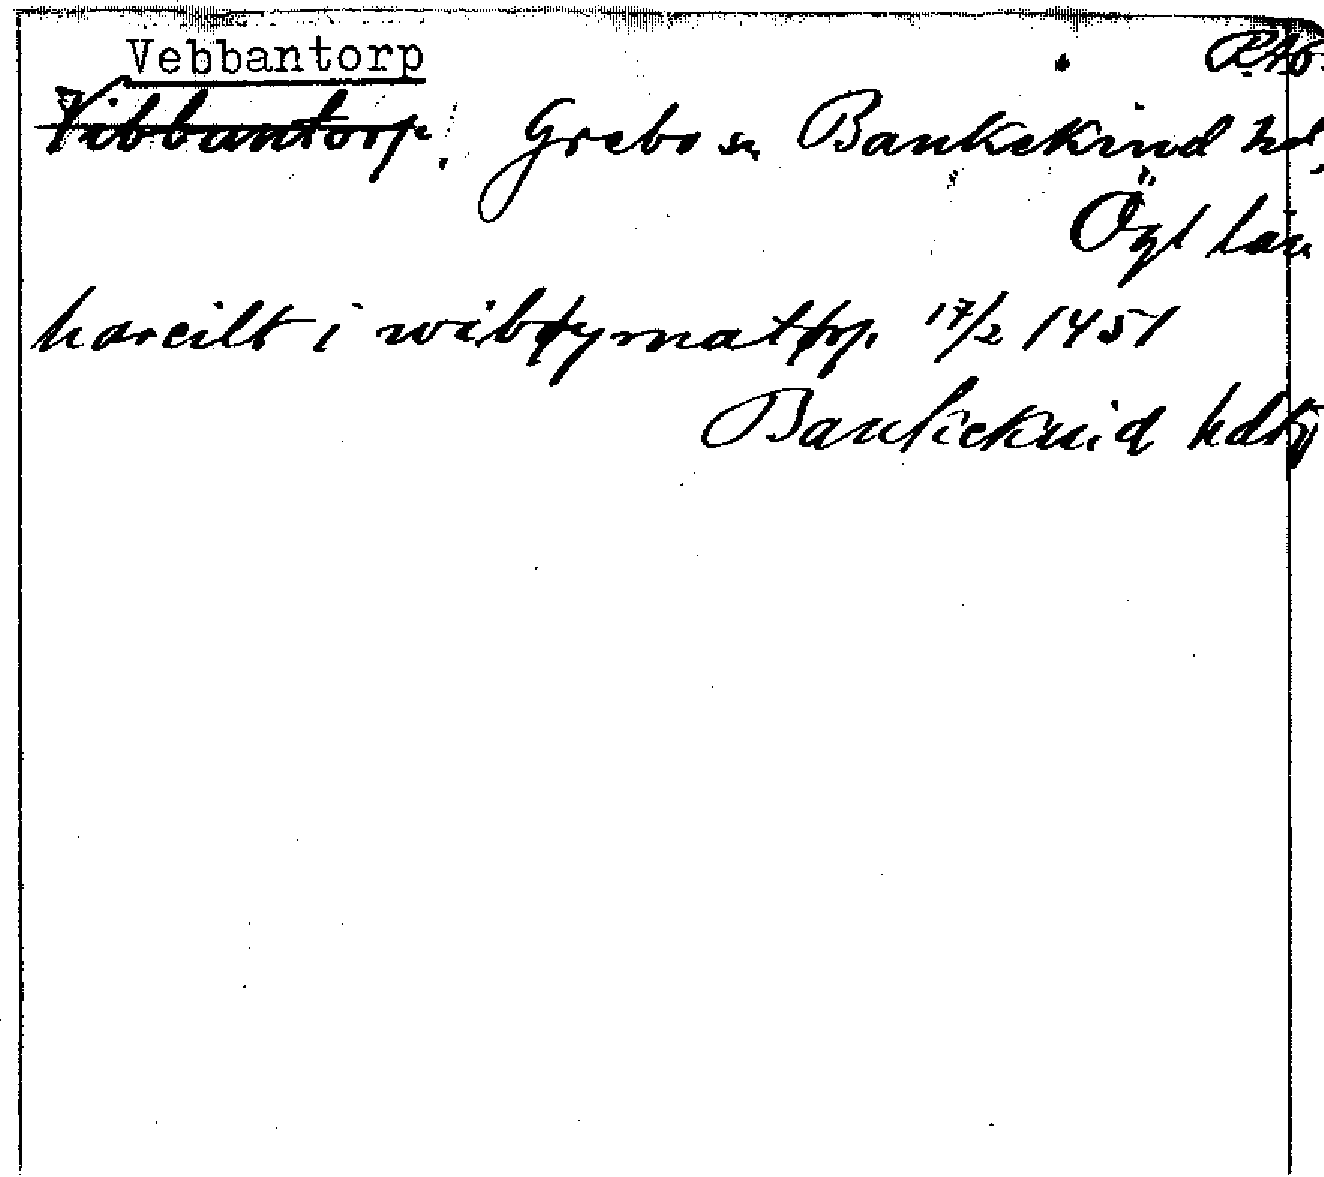 Vebbantorp
Vibbantorp. Grebo sn Bankekind hd,
Ögl län
hareilt i wibþymattþp. 17/2 1451
Bankekind hdtg